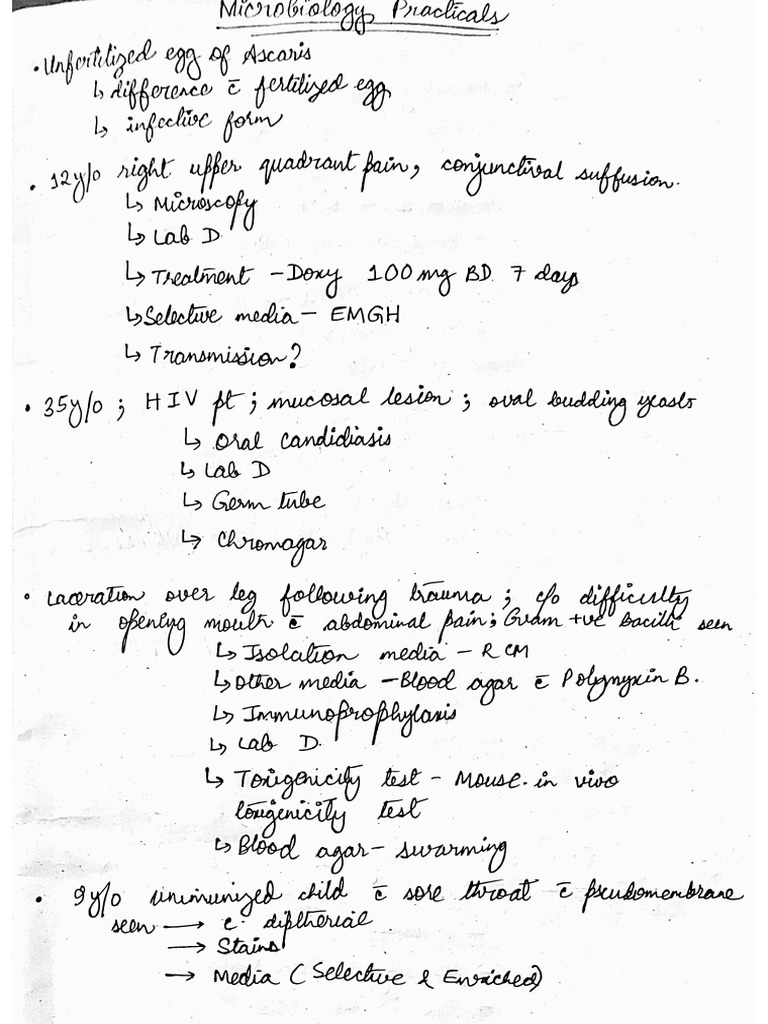 Microbiology Practicals
• Unfertilized egg of Ascaris
↳ difference c̄ fertilized egg
↳ infective form
• 12y/o right upper quadrant pain, conjunctival suffusion.
↳ Microscopy
↳ Lab D
↳ Treatment - Doxy 100mg BD. 7 days
↳ Selective media - EMGH
↳ Transmission?
• 35y/o ; HIV pt ; mucosal lesion ; oval budding yeasts
↳ Oral candidiasis
↳ Lab D
↳ Germ tube
↳ Chromagar
• Laceration over leg following trauma ; c/o difficulty
in opening mouth c̄ abdominal pain; Gram +ve Bacilli seen
↳ Isolation media - RCM
↳ other media - Blood agar c̄ Polymyxin B.
↳ Immunoprophylaxis
↳ Lab D.
↳ Toxigenicity test - Mouse. in vivo
toxigenicity test
↳ Blood agar - swarming
• 9y/o unimmunized child c̄ sore throat c̄ pseudomembrane
seen → C. diptheriae
→ Stains
→ Media (Selective & Enriched)